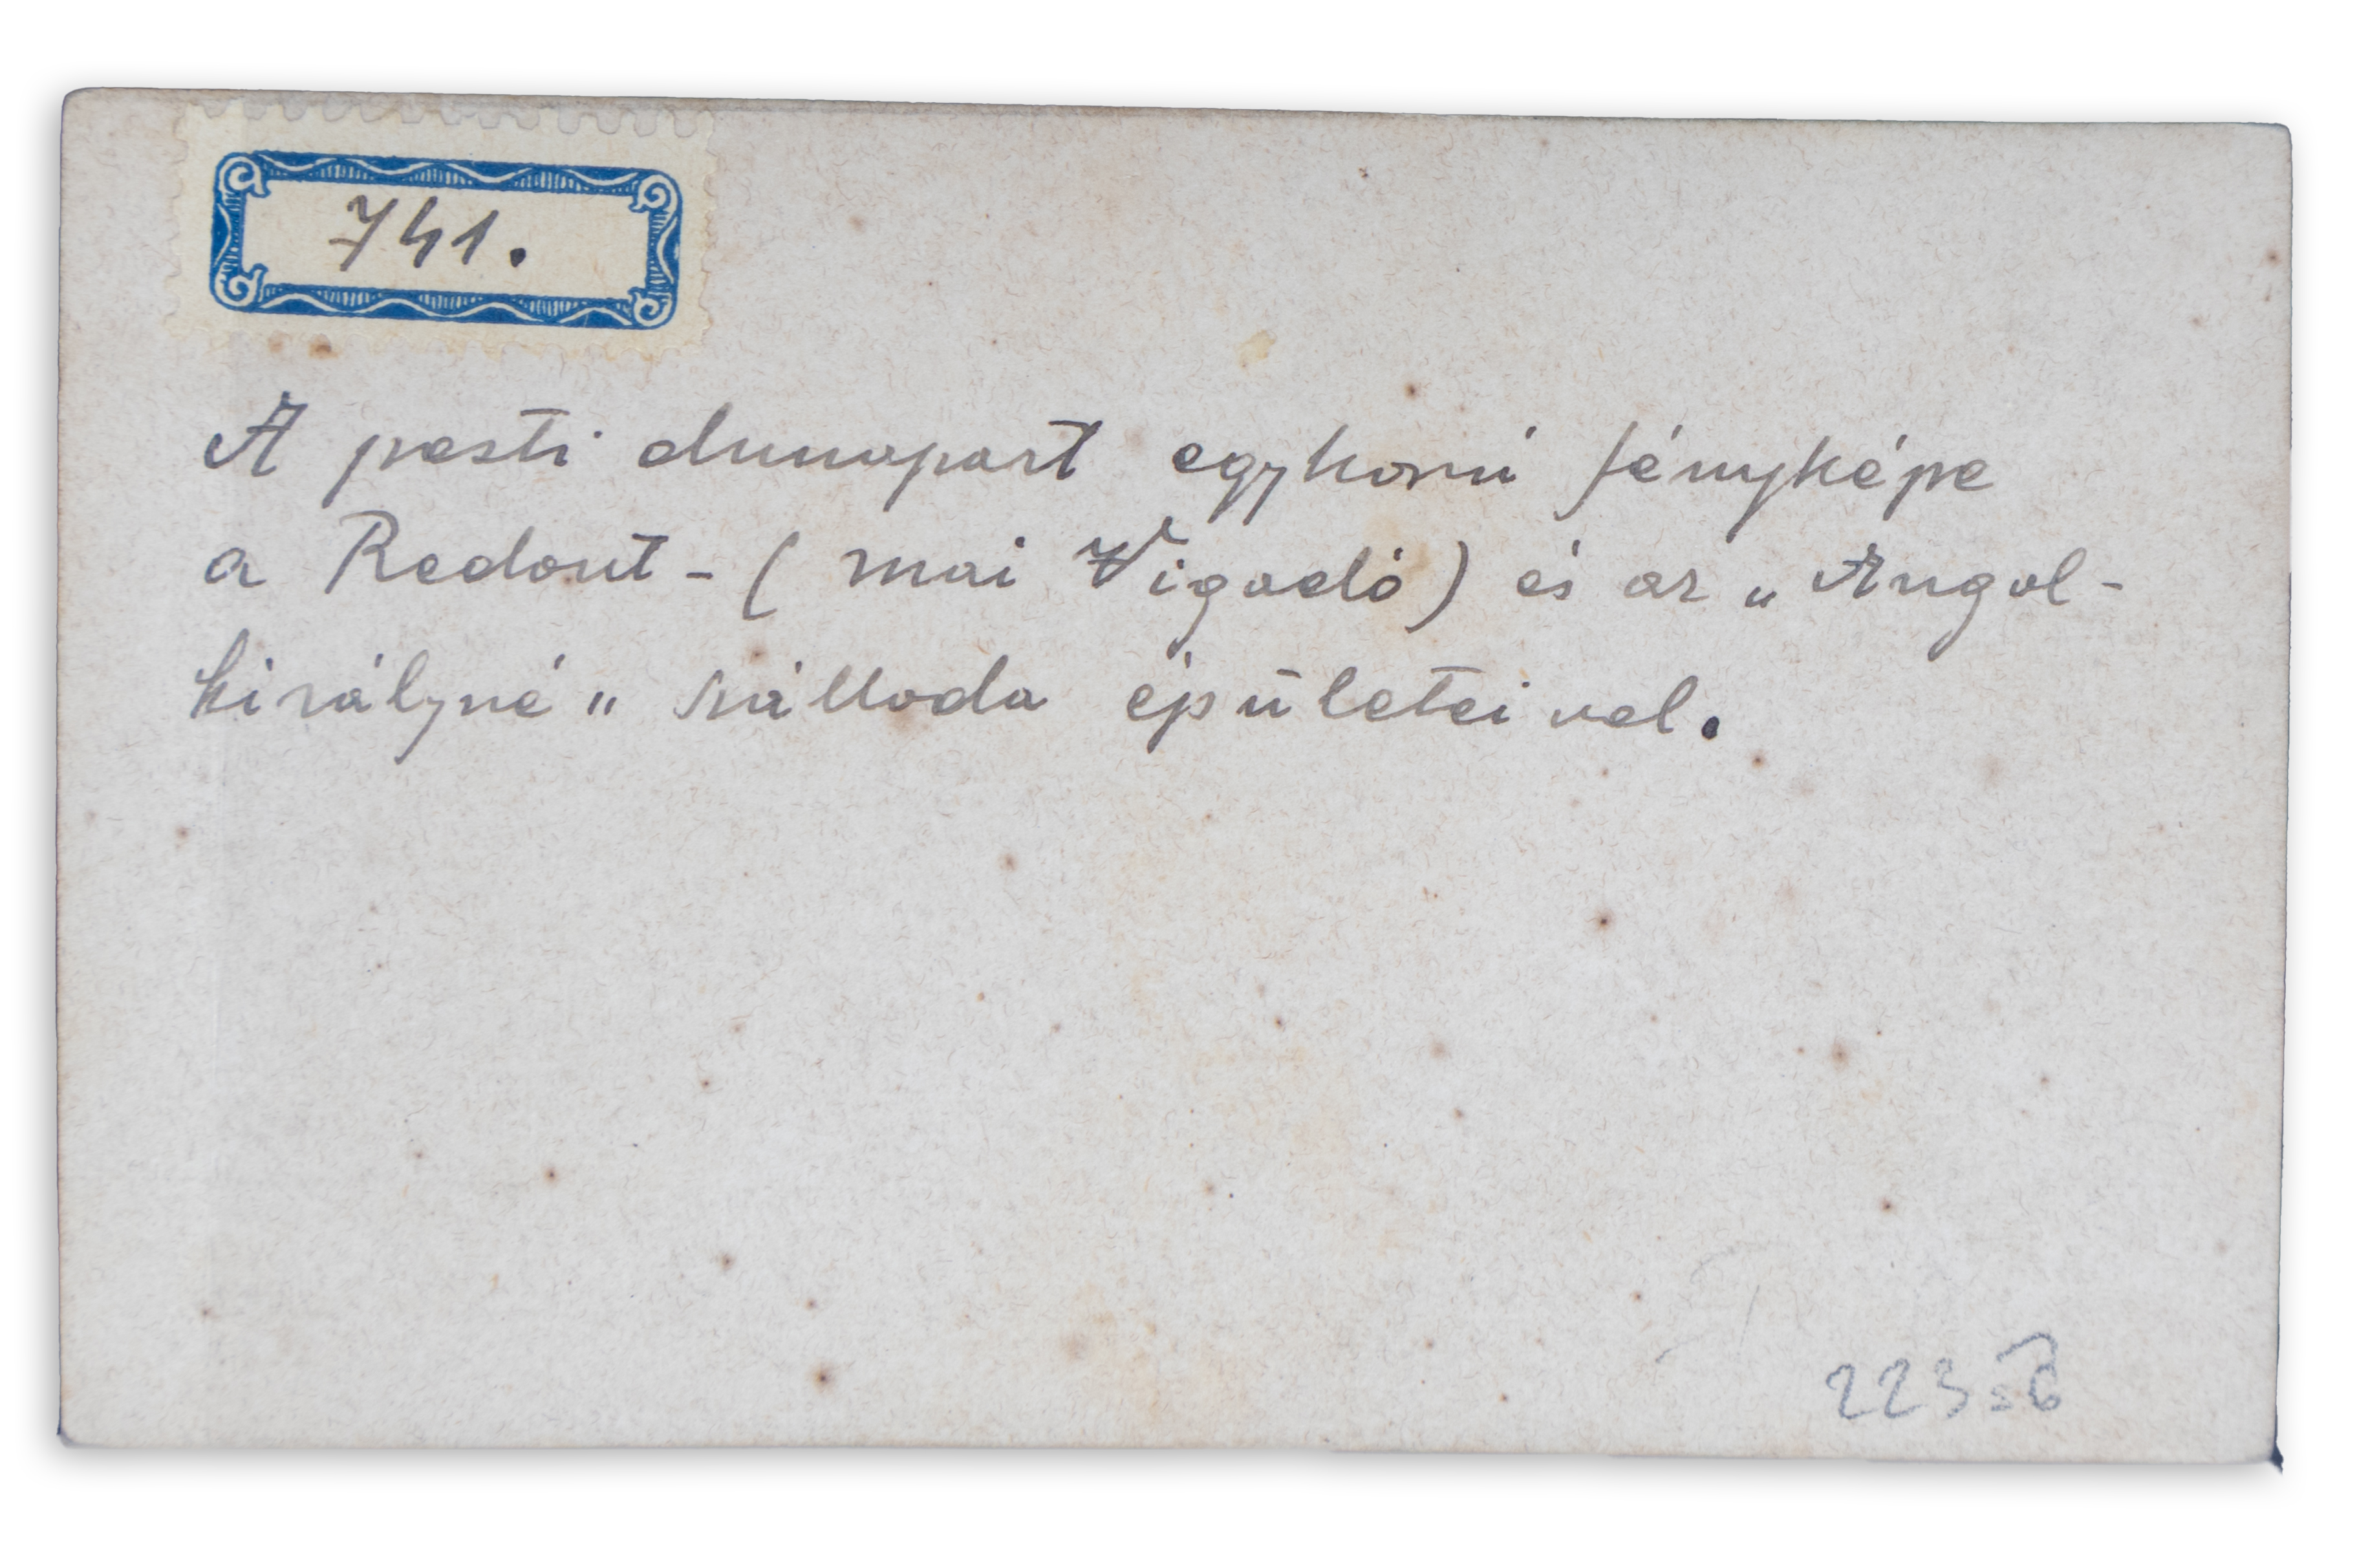 741.
A pesti dunapart egykorú fényképe
a Redout - ( mai Vigadó) és az „Angol-
királyné" szálloda épületeivel.